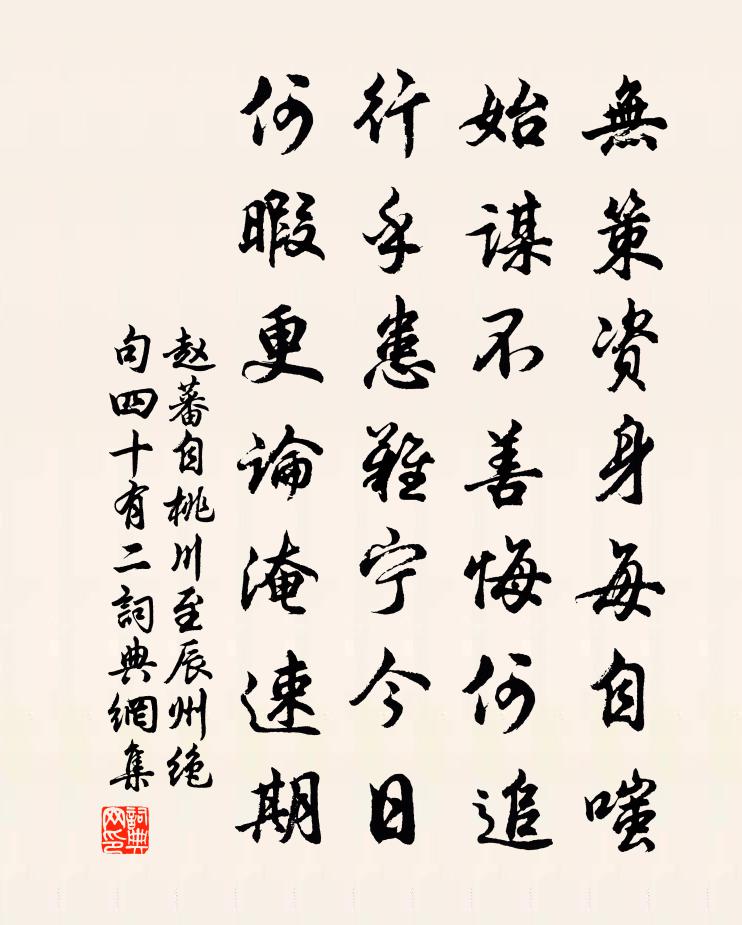 無策资身每自嗤
始谋不善悔何追
行乎患難宁今日
何暇更論淹速期
赵蕃自桃川至辰州绝
句四十有二詞典網集
詞典
网印